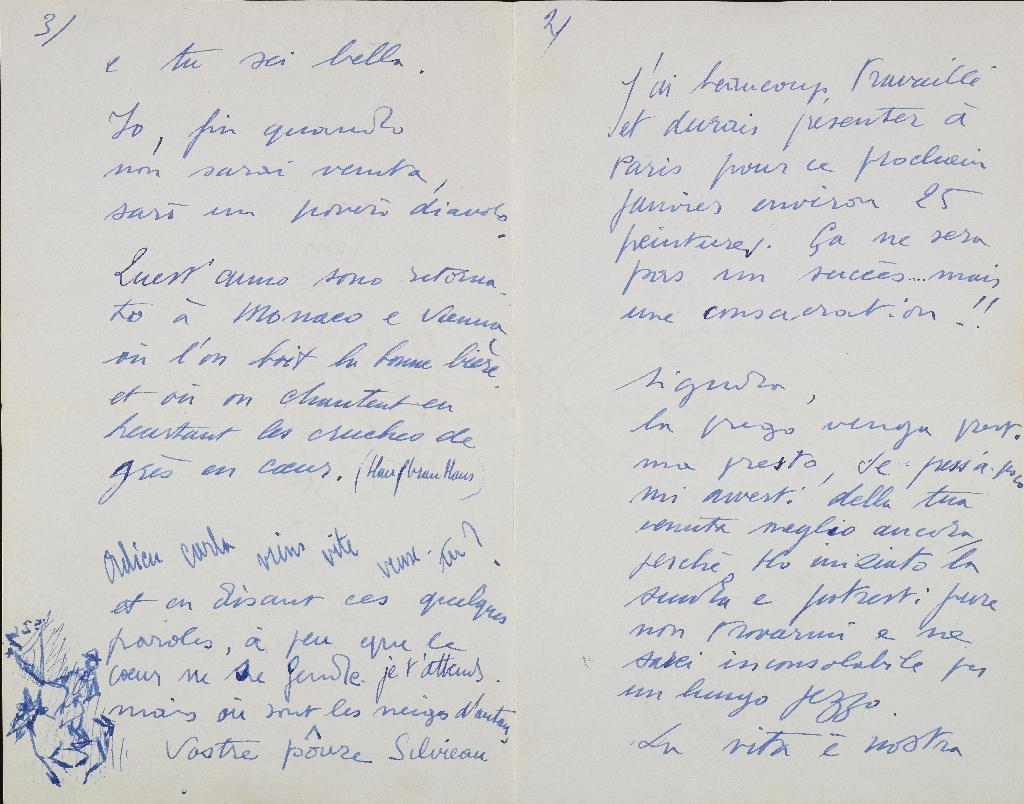 2/
J'ai beaucoup travaillé
et devrais présenter à
Paris pour ce prochain
janvier environ 25
peintures. Ça ne sera
pas un succès... mais
une consacration !!
Signora,
la prego venga prest.
ma presto, se poss'a poco
mi avvesti della tua
venuta meglio ancora,
perchè ho iniziato la
scuola e potresti pure
non trovarmi e ne
sarei inconsolabile per
un lungo pezzo.
La vita è nostra
3/
e tu sei bella.
Io, fin quando
non sarai venuta,
sarò un povero diavolo.
Quest'anno sono ritorna-
to à Monaco e Vienna
où l'on boit la bonne bière
et où on chantent en
heurtant les cruches de
grès en cœur. (Haufbrau Haus)
Adieu carla viens vite veux-tu?
et en disant ces quelques
paroles, à peu que le
cœur ne se fende je t'attends.
mais où sont les neiges d'antan,
Vostre pôure Silvieau